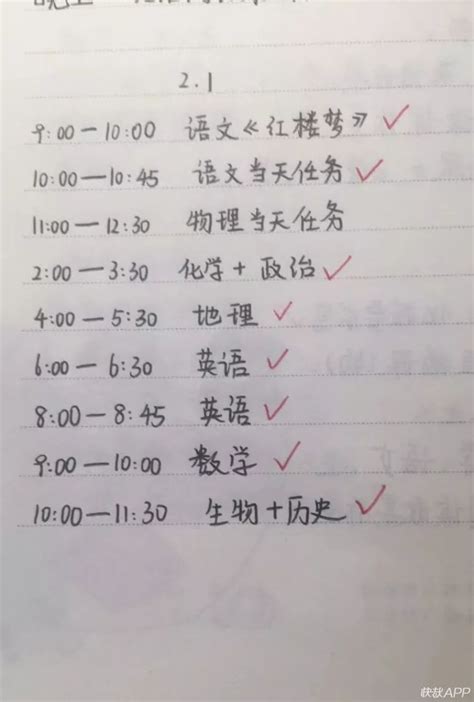 2.1
9:00—10:00 语文《红楼梦》✓
10:00—10:45 语文当天任务✓
11:00—12:30 物理当天任务
2:00—3:30 化学+政治✓
4:00—5:30 地理✓
6:00—6:30 英语✓
8:00—8:45 英语✓
9:00—10:00 数学✓
10:00—11:30 生物+历史✓
快敌APP